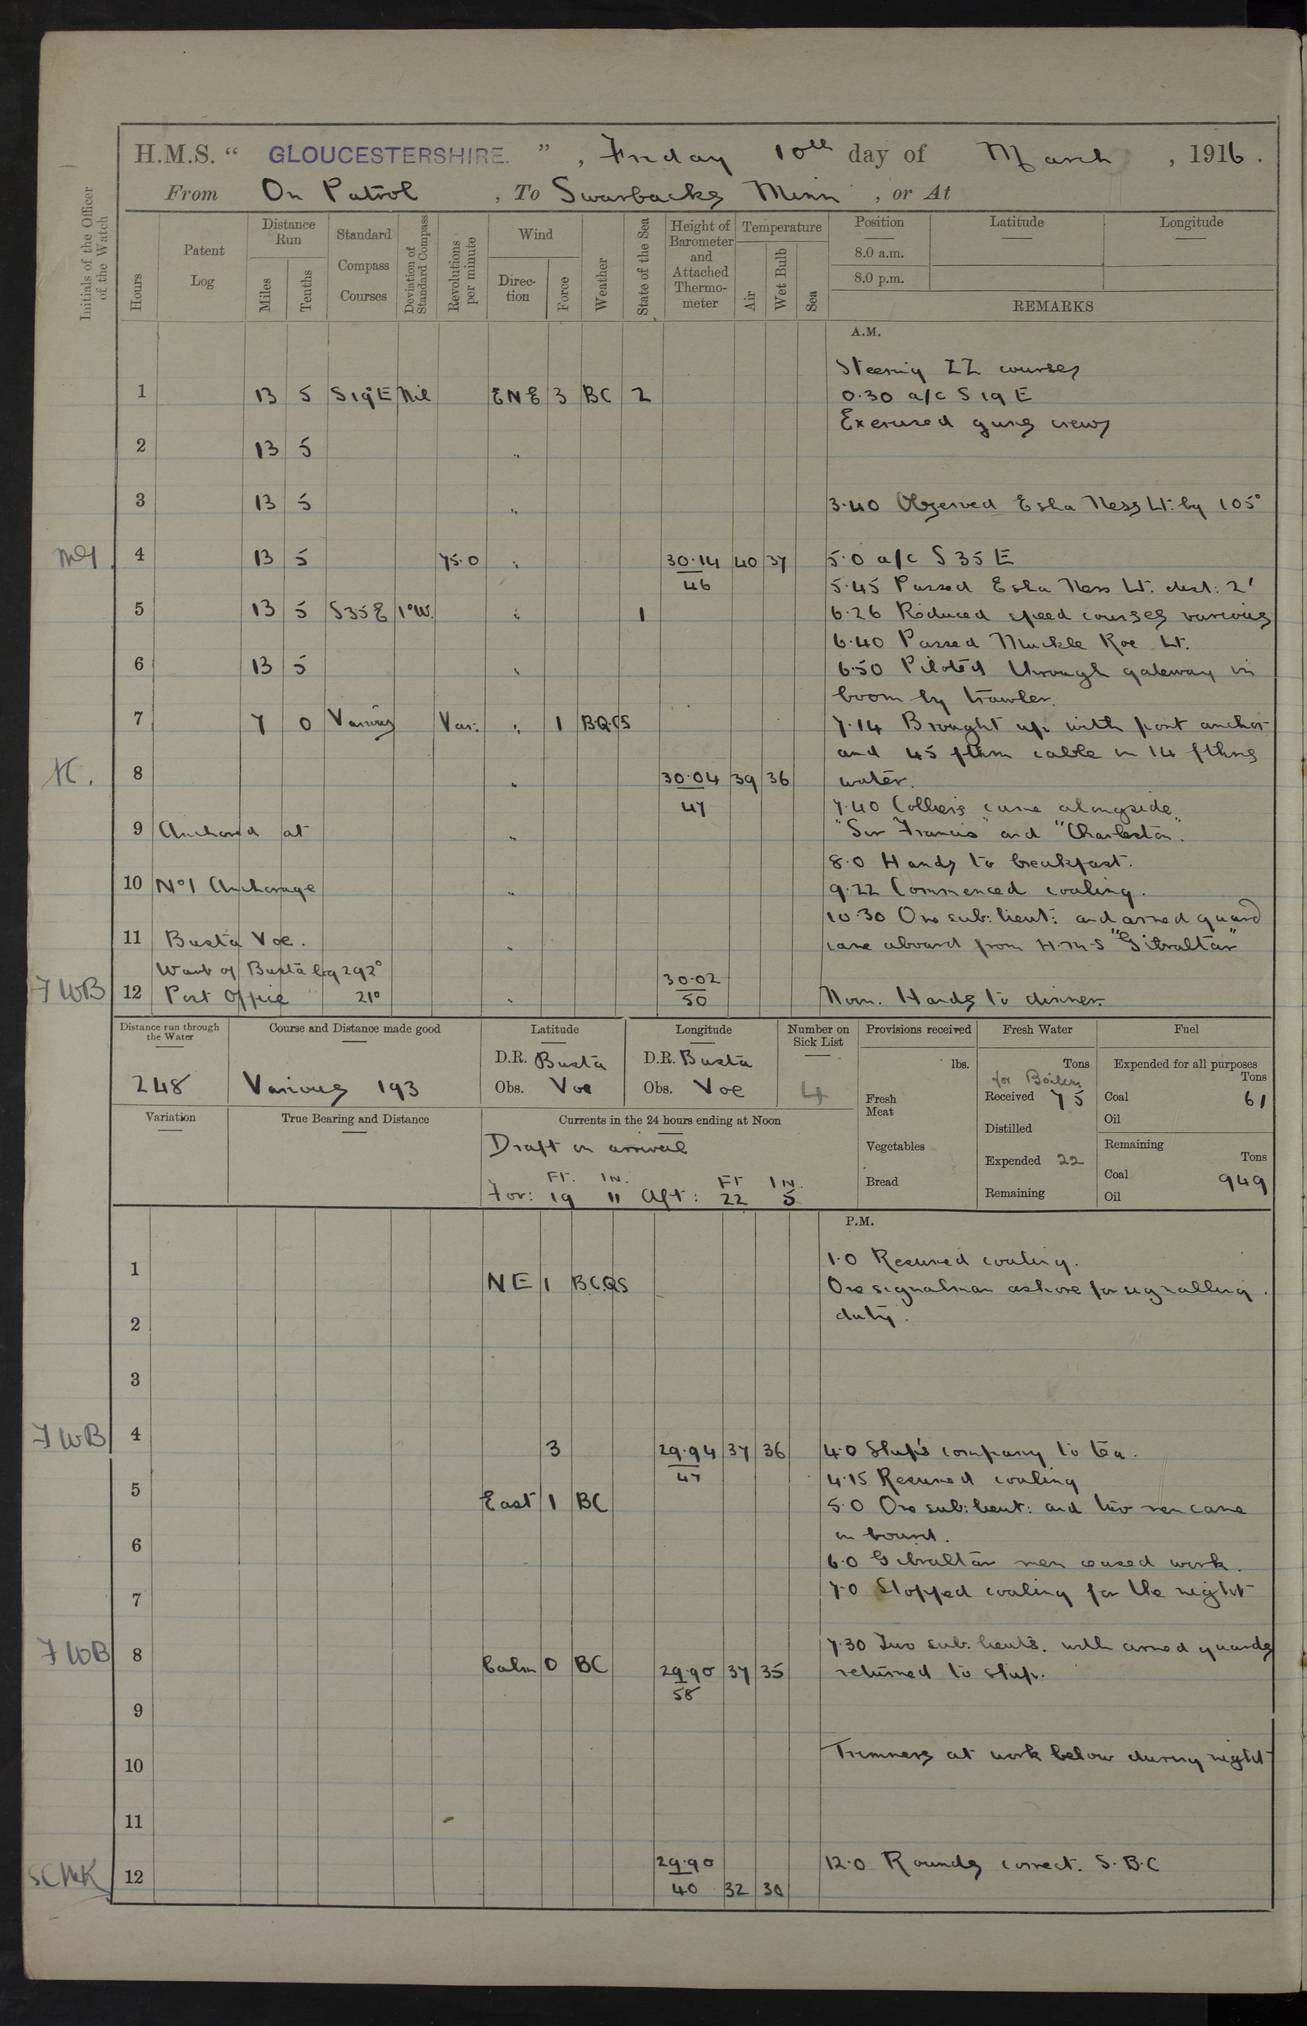 H.M.S. " GLOUCESTERSHIRE. ", Friday 10th day of March, 1916.
From On Patrol, To Swarbacks Minn, or At
Initials of the Officer of the Watch
Hours
Patent Log
Distance Run
Miles
Tenths
Standard Compass Courses
Deviation of Standard Compass
Revolutions per minute
Wind
Direction
Force
Weather
State of the Sea
Height of Barometer and Attached Thermometer
Temperature
Air
Wet Bulb
Sea
Position
Latitude
Longitude
8.0 a.m.
8.0 p.m.
REMARKS
A.M.
Steering ZZ courses
1 13 5 S19°E Nil ENE 3 BC 2 0.30 a/c S 19 E
Exercised guns crews
2 13 5 "
3 13 5 " 3.40 Observed Esha Ness Lt: by 105°
4 13 5 75.0 " 30.14 40 37 5.0 a/c S 35 E
46 5.45 Passed Esha Ness Lt. dist: 2'
5 13 5 S35E 1°W. " 1 6.26 Reduced speed courses various
6.40 Passed Muckle Roe Lt.
6 13 5 " 6.50 Piloted through gateway in
boom by trawler.
7 7 0 Various Var. " 1 B.Q.C.S 7.14 Brought up with port anchor
and 45 fthm cable in 14 fthms
8 " 30.04 39 36 water.
47 7.40 Colliers came alongside
9 Anchored at " "Sir Francis" and "Charleston".
8.0 Hands to breakfast.
10 No 1 Anchorage " 9.22 Commenced coaling.
10.30 One sub: lieut: and armed guard
11 Busta Voe. " came aboard from H.M.S "Gibraltar"
of Busta brg 292°
FWB 12 Post Office 21° " 30.02
50 Noon. Hands to dinner.
Distance run through the Water
248
Course and Distance made good
Various 193
Latitude
D.R. Busta
Obs. Voe
Longitude
D.R. Busta
Obs. Voe
Number on Sick List
4
Provisions received
lbs.
Fresh Meat
Vegetables
Bread
Fresh Water
Tons
for Boilers
Received 75
Distilled
Expended 22
Remaining
Fuel
Expended for all purposes
Tons
Coal 61
Oil
Remaining
Tons
Coal 949
Oil
Variation
True Bearing and Distance
Currents in the 24 hours ending at Noon
Draft on arrival
FT. IN. FT IN.
For: 19 11 Aft: 22 5
P.M.
1.0 Resumed coaling.
1 NE 1 B.C.Q.S One signalman ashore for signalling
2 duty.
3
FWB 4 3 29.94 37 36 4.0 Ship's company to tea.
47 4.15 Resumed coaling
5 East 1 BC 5.0 One sub: lieut: and two men came
on board.
6 6.0 Gibraltar men ceased work.
7 7.0 Stopped coaling for the night
FWB 8 7.30 Two sub: lieuts. with armed guards
Calm 0 BC 29.90 37 35 returned to ship.
58
9
10 Trimmers at work below during night
11
12 29.90 12.0 Rounds correct. S.B.C
40 32 30